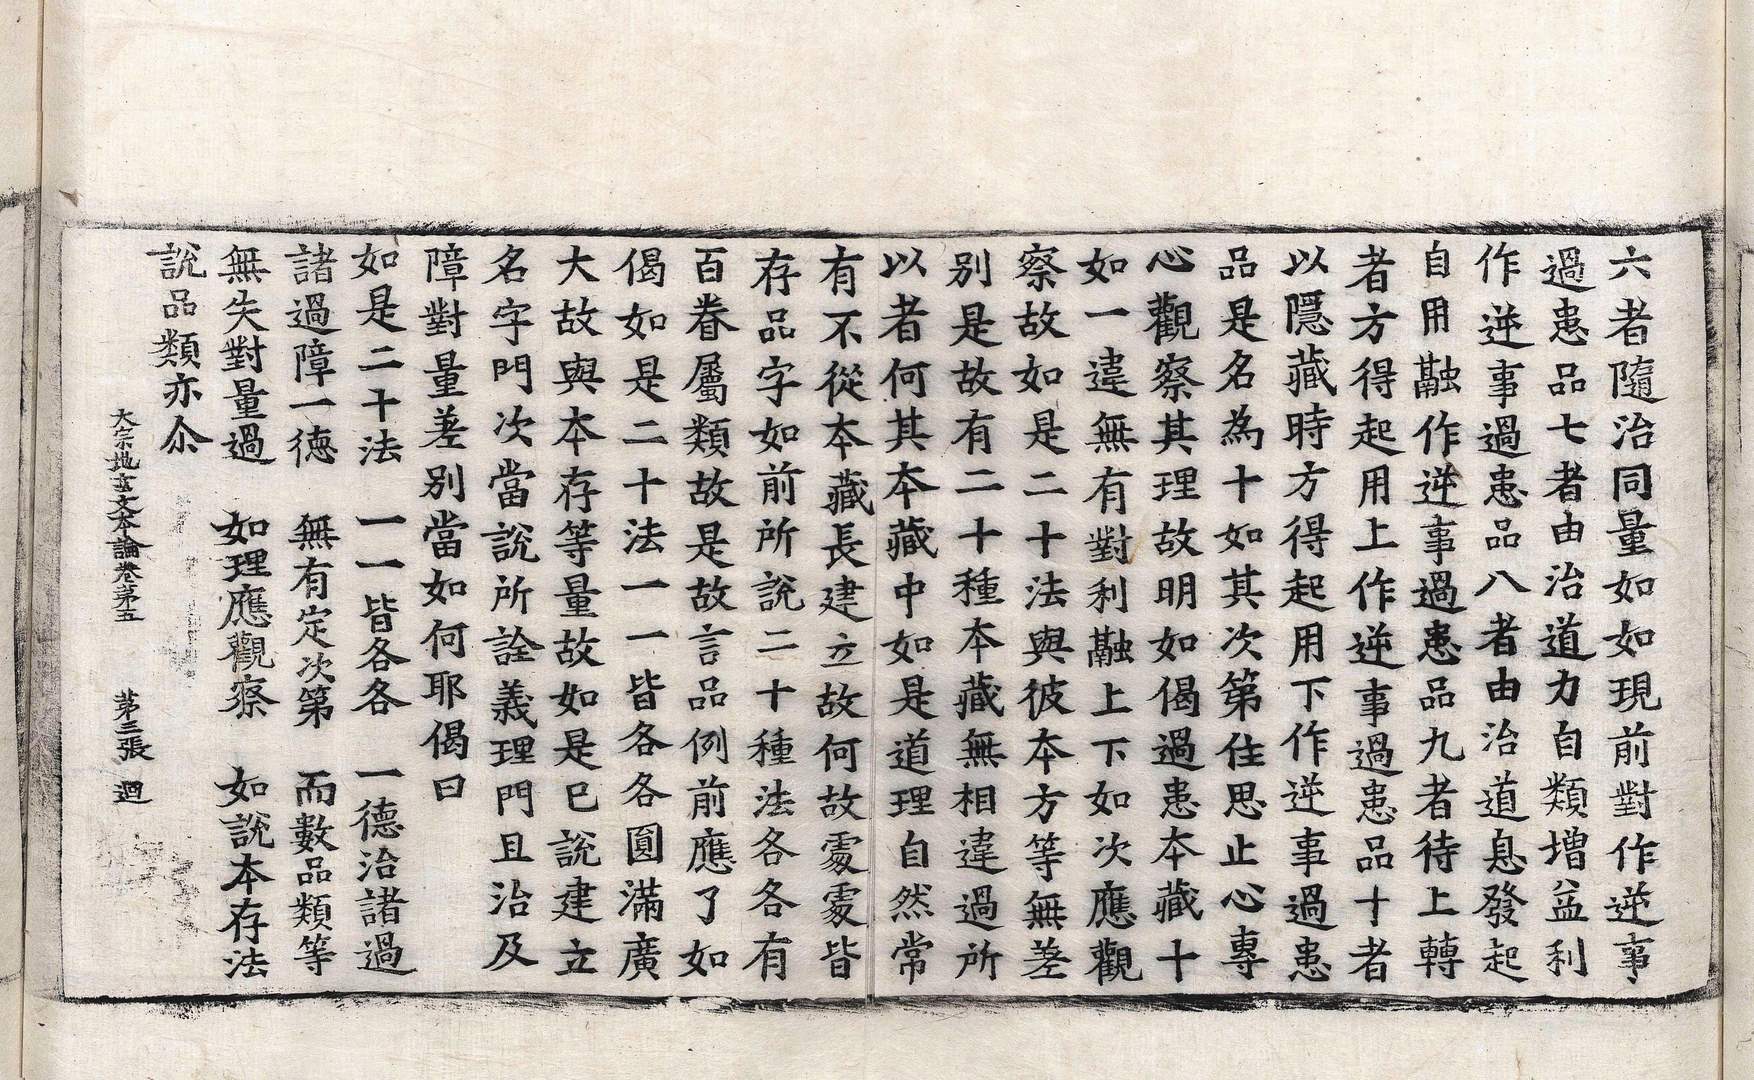 六者隨治同量如如現前對作逆事
過患品七者由治道力自類增益利
作逆事過患品八者由治道息發起
自用融作逆事過患品九者待上轉
者方得起用上作逆事過患品十者
以隱藏時方得起用下作逆事過患
品是名為十如其次第住思止心專
心觀察其理故明如偈過患本藏十
如一違無有對利融上下如次應觀
察故如是二十法與彼本方等無差
別是故有二十種本藏無相違過所
以者何其本藏中如是道理自然常
有不從本藏長建立故何故處處皆
存品字如前所說二十種法各各有
百眷屬類故是故言品例前應了如
偈如是二十法一一皆各各圓滿廣
大故與本存等量故如是已說建立
名字門次當說所詮義理門且治及
障對量差別當如何耶偈曰
如是二十法　一一皆各各　一德治諸過
諸過障一德　無有定次第　而數品類等
無失對量過　如理應觀察　如說本存法
說品類亦尒
大宗地玄文本論卷第五　第三張　迴